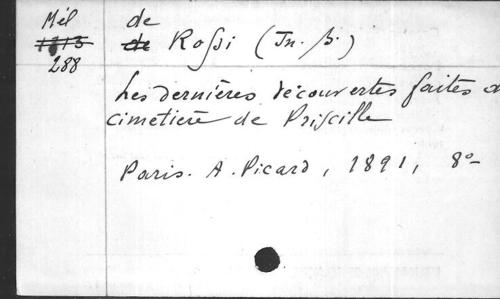 Mél
1313
288
de
de Rossi (Jn. B.)
Les dernières découvertes faites a
cimetière de Priscille
Paris. A. Picard, 1891, 8º